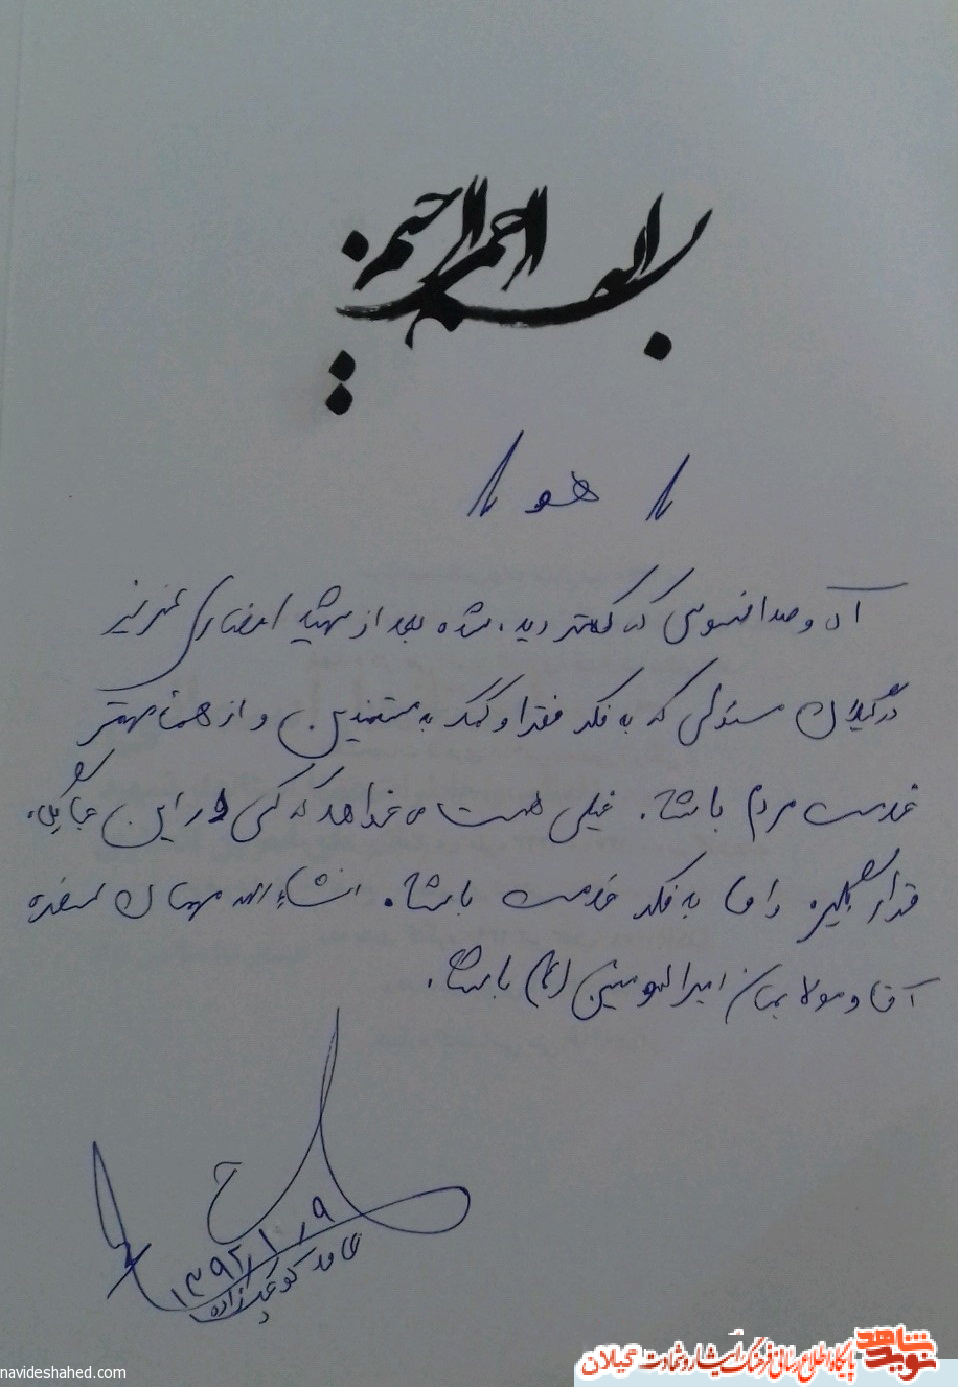 بسم الله الرحمن الرحیم
« هو »
آه و صد افسوس که کمتر دیده شده بعد از شهید انصاری عزیز
در گیلان مسئولی که به فکر فقرا و کمک به مستمندین و از همه مهمتر
خدمت مردم باشد. خیلی همت می‌خواهد که کسی در این جایگاه
قرار بگیره و اما به فکر خدمت باشد. انشاءالله مهمان سفره
آقا و مولایمان امیرالمومنین (ع) باشد.
۱۳۹۲/۱/۹
navideshahed.com
نوید شاهد
پایگاه اطلاع رسانی فرهنگ ایثار و شهادت گیلان